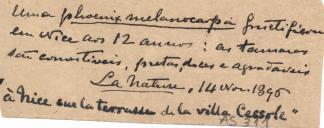 Uma phoenix melanocarpa frutificou
em Nice aos 12 annos: as tamaras
são comestiveis, pretas, doces e agradaveis
La Nature, 14 Nov. 1896
"à Nice sur la terrasse de la villa Cessole"
AS 311